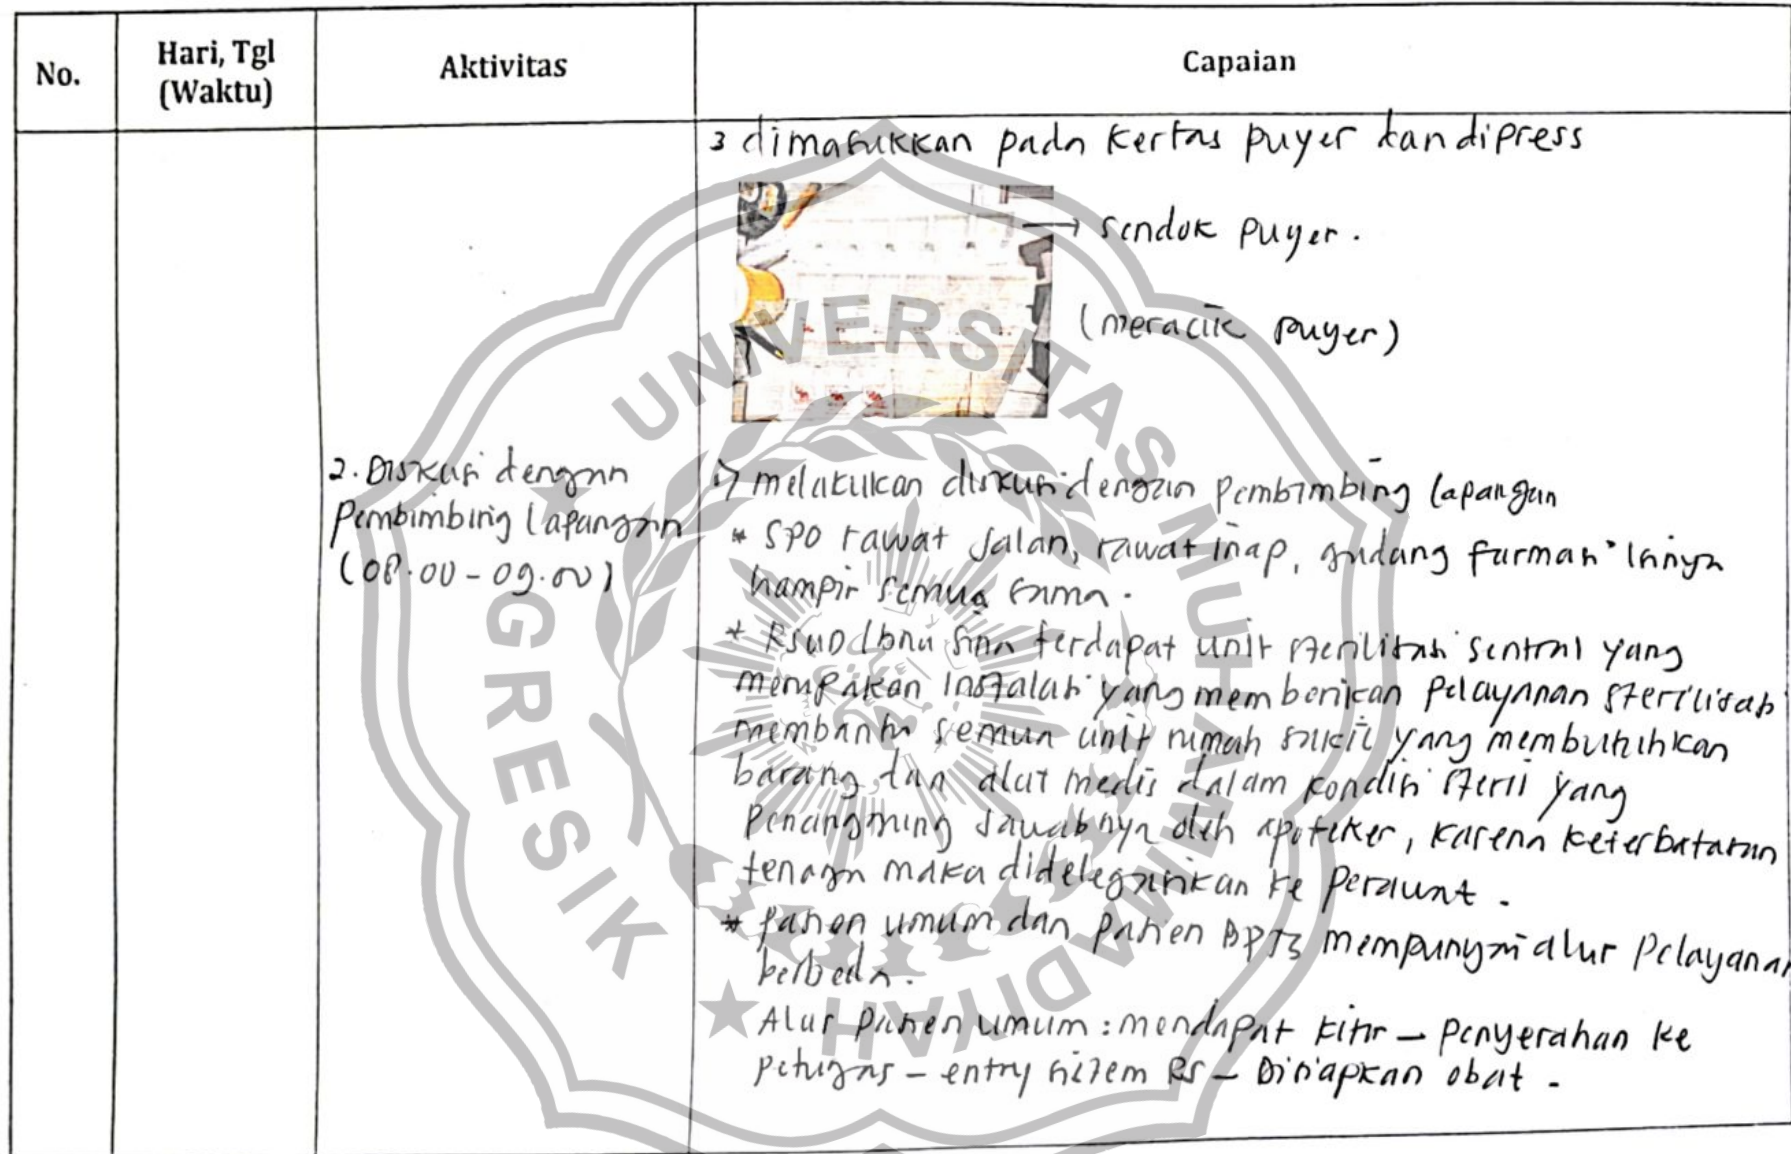 No.
Hari, Tgl
(Waktu)
Aktivitas
Capaian
3 dimasukkan pada kertas puyer dan dipress
→ sendok puyer.
(meracik puyer)
2. Diskusi dengan
Pembimbing lapangan
(08.00 - 09.00)
1) melakukan diskusi dengan pembimbing lapangan
* SPO rawat jalan, rawat inap, gudang farmasi lainnya
hampir semua sama.
* RSUD Ibnu Sina terdapat unit sterilisasi sentral yang
merupakan instalasi yang memberikan pelayanan sterilisasi
membantu semua unit rumah sakit yang membutuhkan
barang dan alat medis dalam kondisi steril yang
penanggung jawabnya oleh apoteker, karena keterbatasan
tenaga maka didelegasikan ke perawat.
* pasien umum dan pasien BPJS mempunyai alur pelayanan
berbeda.
Alur pasien umum : mendapat kitir – penyerahan ke
petugas – entry sistem RS – Disiapkan obat -
UNIVERSITAS MUHAMMADIYAH
GRESIK